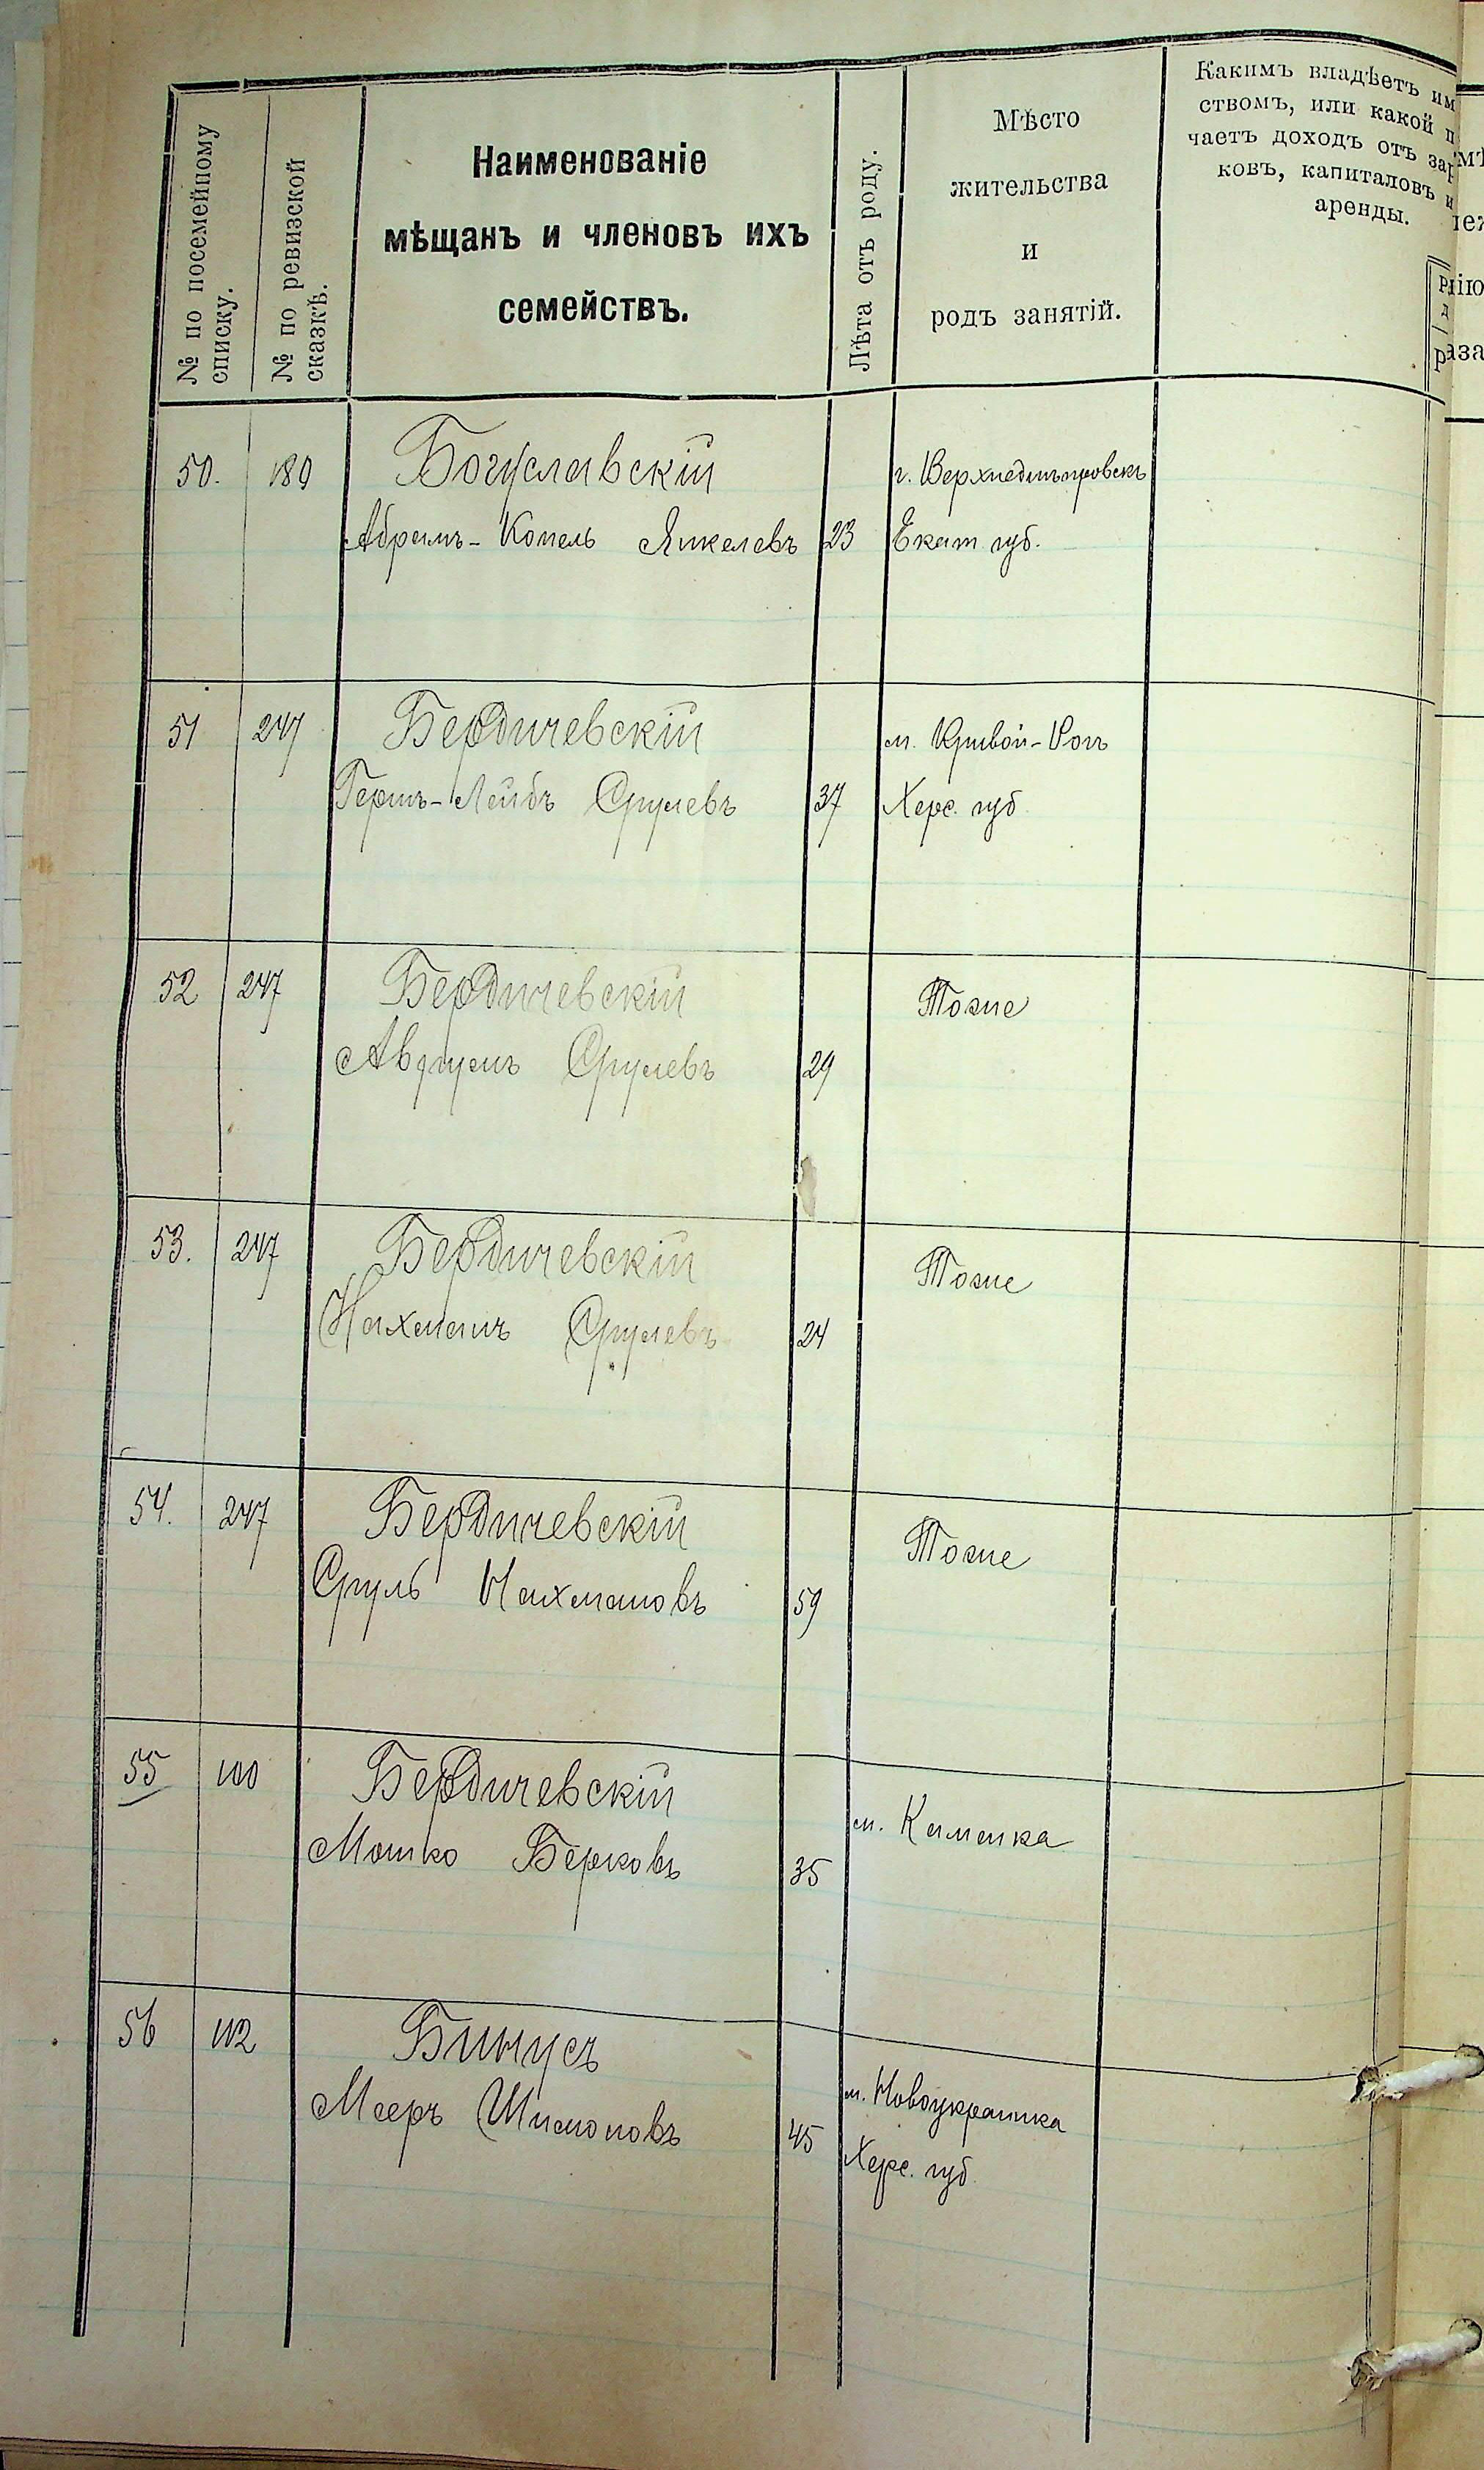 № по посемейному
списку.
№ по ревизской
сказкѣ.
Наименованіе
мѣщанъ и членовъ ихъ
семействъ.
Лѣта отъ роду.
Мѣсто
жительства
и
родъ занятій.
Какимъ владѣетъ им
ствомъ, или какой п
чаетъ доходъ отъ зар
ковъ, капиталовъ и
аренды.
50. 189 Богуславскій г. Верхнеднѣпровскъ
Абрамъ-Копель Янкелевъ 23 Екат. губ.
51 247 Бердичевскій м. Кривой-Рогъ
Гершъ-Лейбъ Срулевъ 37 Херс. губ
52 247 Бердичевскій Тоже
Авдумъ Срулевъ 29
53. 247 Бердичевскій Тоже
Нахманъ Срулевъ 24
54. 247 Бердичевскій Тоже
Сруль Нахмановъ 59
55 100 Бердичевскій м. Каменка
Мошко Берковъ 35
56 112 Бинусъ м. Новоукраинка
Мееръ Шимоновъ 45 Херс. губ.